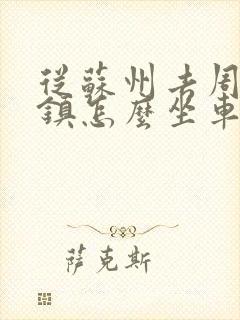 從蘇州去周
鎮怎麼坐車
萨克斯